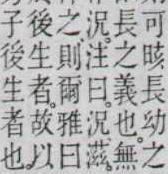 可晐長幼之
長之義也。無
況注曰況滋
之則爾雅曰
後生者。故以
子後生者也